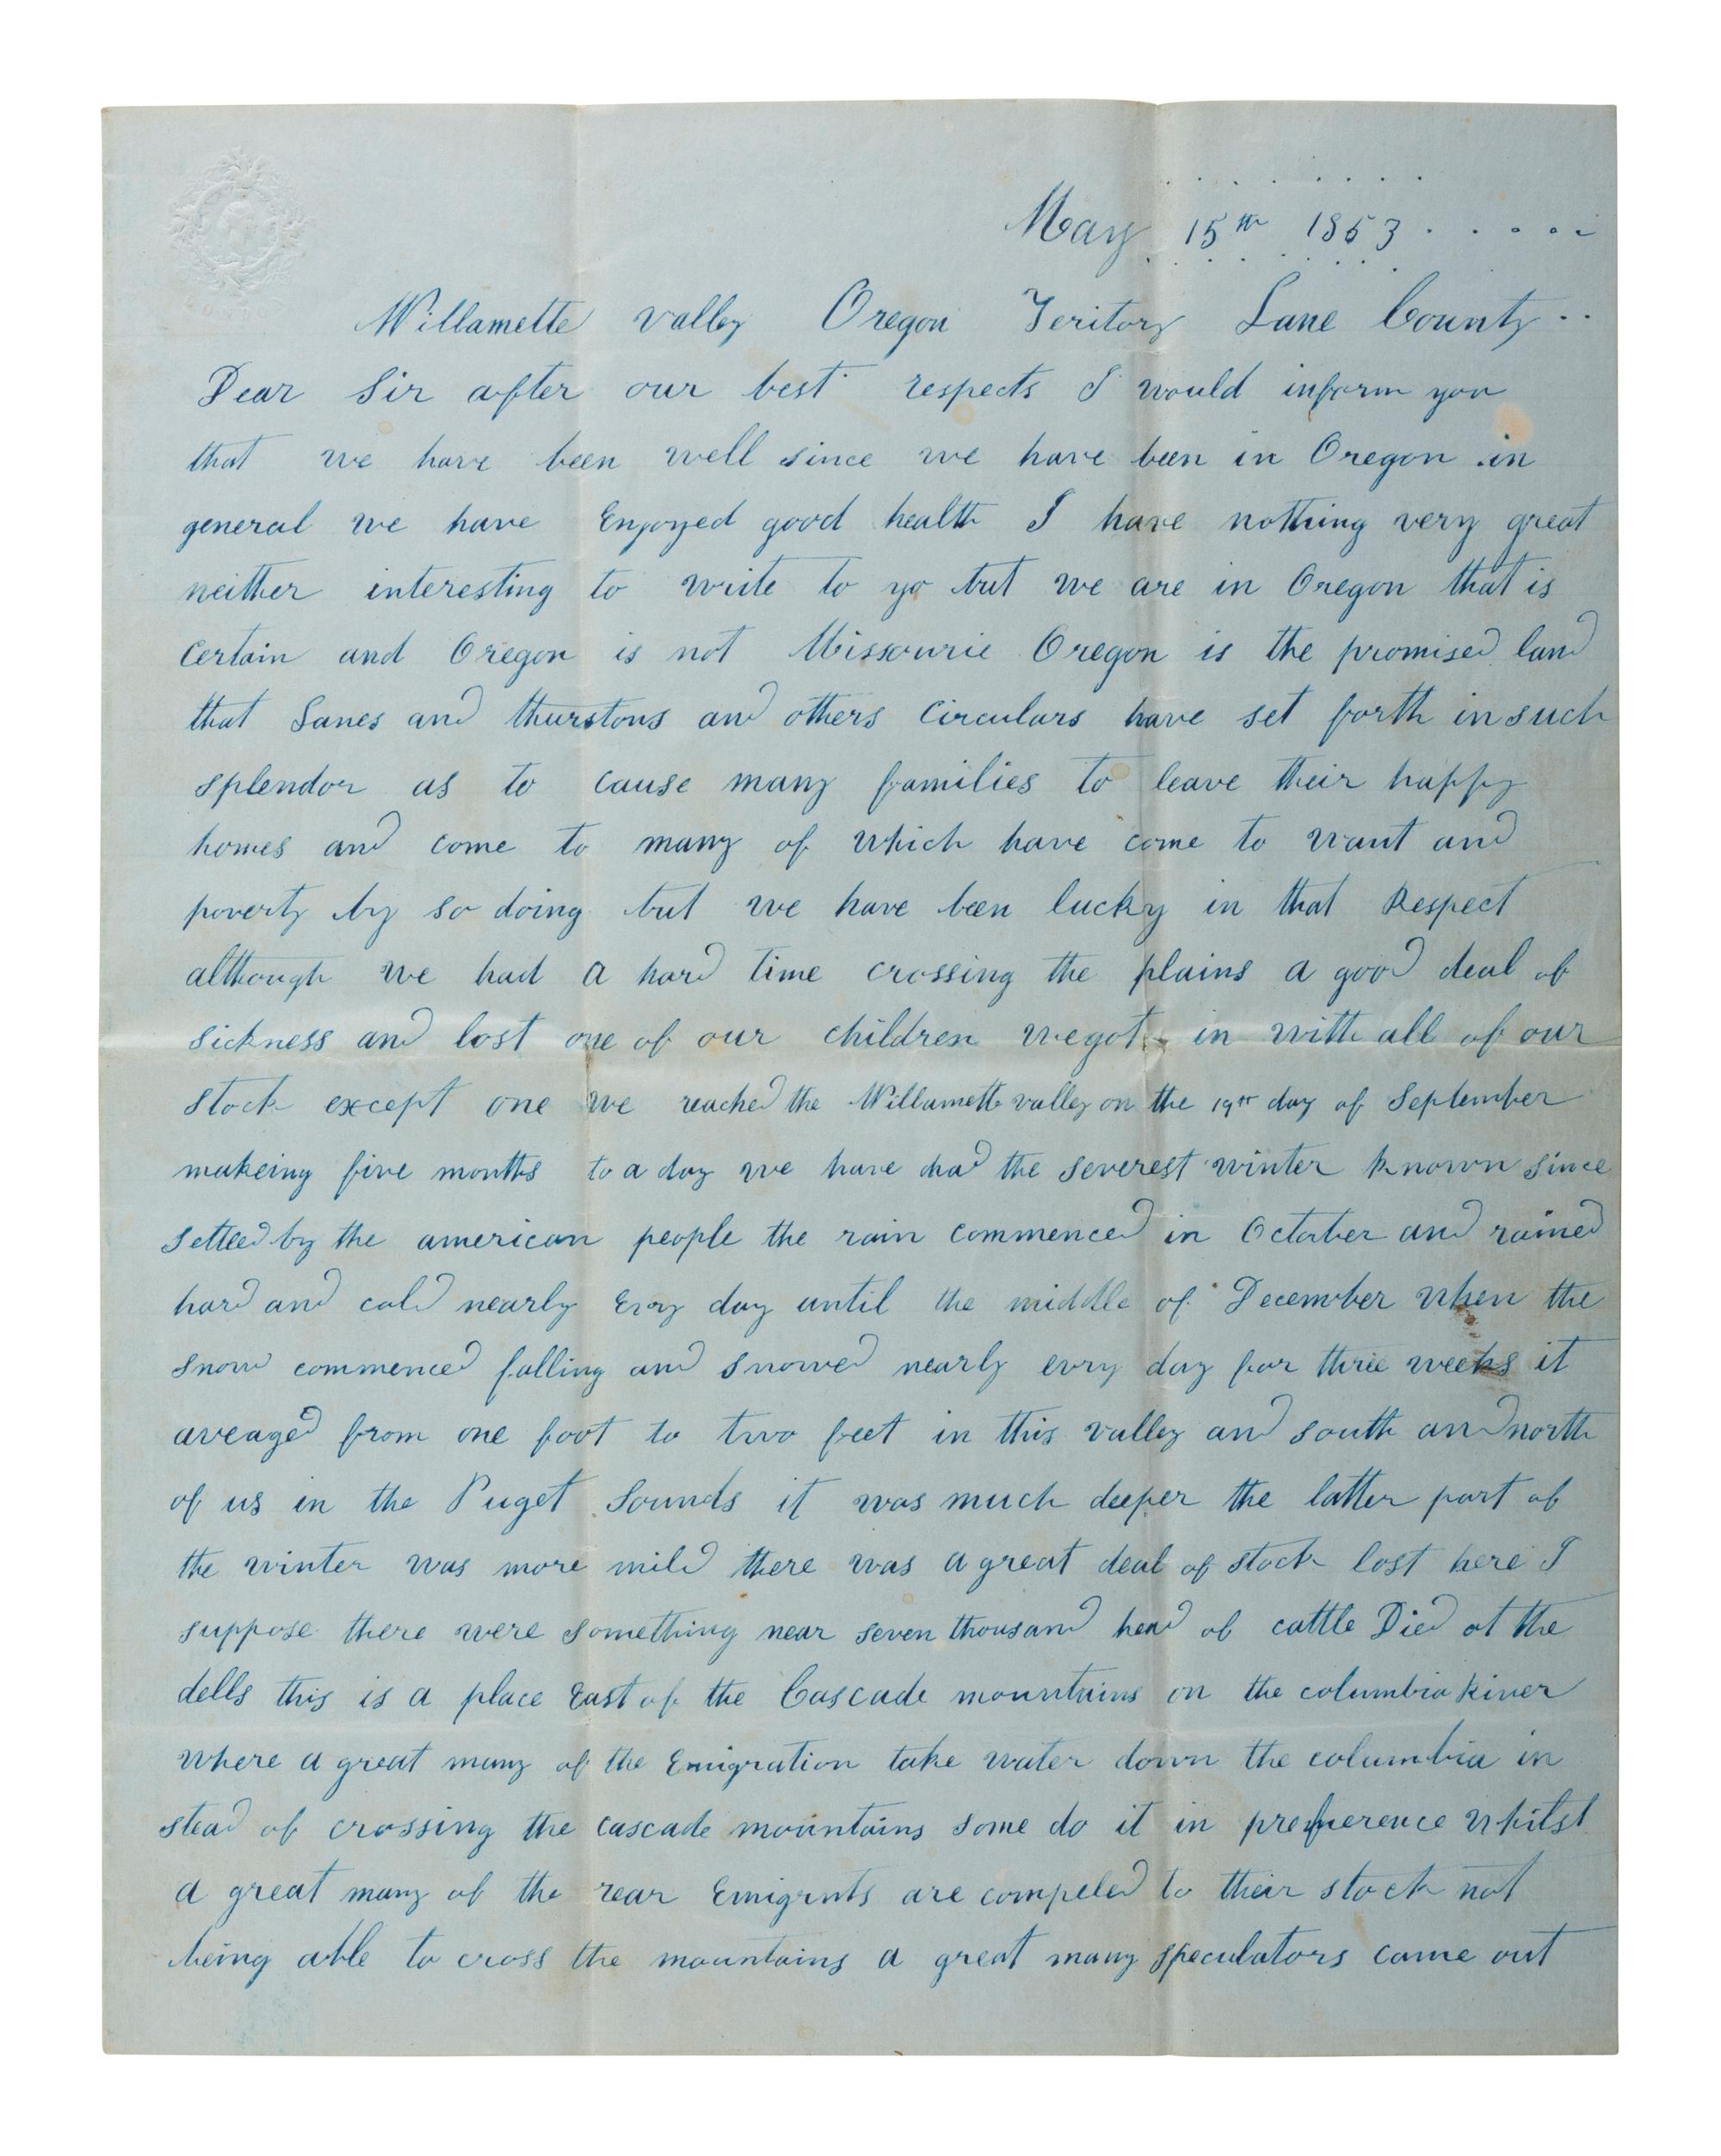 May 15th 1853
Willamette valley Oregon Teritory Lane County
Dear Sir after our best respects I would inform you
that we have been well since we have been in Oregon in
general we have Enjoyed good health I have nothing very great
neither interesting to write to yo but we are in Oregon that is
certain and Oregon is not Missourie Oregon is the promised land
that Lanes and thurstons and others Circulars have set forth in such
splendor as to cause many families to leave their happy
homes and come to many of which have come to want and
poverty by so doing but we have been lucky in that Respect
although we had a hard time crossing the plains a good deal of
sickness and lost one of our children we got in with all of our
stock except one we reached the Willamette valley on the 19th day of September
makeing five months to a day we have had the severest winter known since
settled by the american people the rain commenced in October and rained
hard and cold nearly Evry day until the middle of December when the
snow commenced falling and snowed nearly evry day for three weeks it
aveaged from one foot to two feet in this valley and south and north
of us in the Puget Sounds it was much deeper the latter part of
the winter was more mild there was a great deal of stock lost here I
suppose there were something near seven thousand head of cattle Died at the
dells this is a place East of the Cascade mountains on the columbia River
where a great many of the Emigration take water down the columbia in
stead of crossing the cascade mountains some do it in preference whilst
a great many of the rear Emigrnts are compeled to their stock not
being able to cross the mountains a great many speculators came out